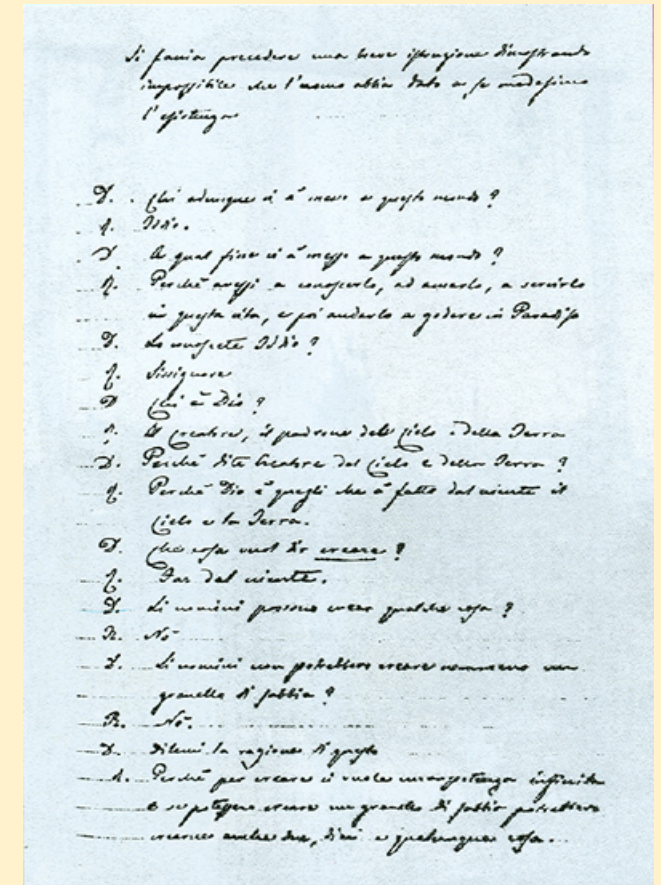 Si faccia precedere una breve istruzione dimostrando
impossibile che l'uomo abbia dato a se medesimo
l'esistenza
D. Chi adunque ci à messo a questo mondo ?
R. Iddio.
D. A qual fine ci à messo a questo mondo ?
R. Perché avessi a conoscerlo, ad amarlo, a servirlo
in questa vita, e poi andarlo a godere in Paradiso
D. Lo conoscete Iddio ?
R. Sissignore
D. Chi è Dio ?
R. Il Creatore, il padrone del Cielo e della Terra
D. Perché dite Creatore del Cielo e della Terra ?
R. Perché Dio è quegli che à fatto dal niente il
Cielo e la Terra.
D. Che cosa vuol dir creare ?
R. Far dal niente.
D. Li uomini possono crear qualche cosa ?
R. Nò
D. Li uomini non potrebbero creare nemmeno un
granello di sabbia ?
R. Nò.
D. Ditemi la ragione di questo
R. Perché per creare ci vuole una potenza infinita
e se potessero creare un granello di sabbia potrebbero
crearne anche due, dieci e qualunque cosa.